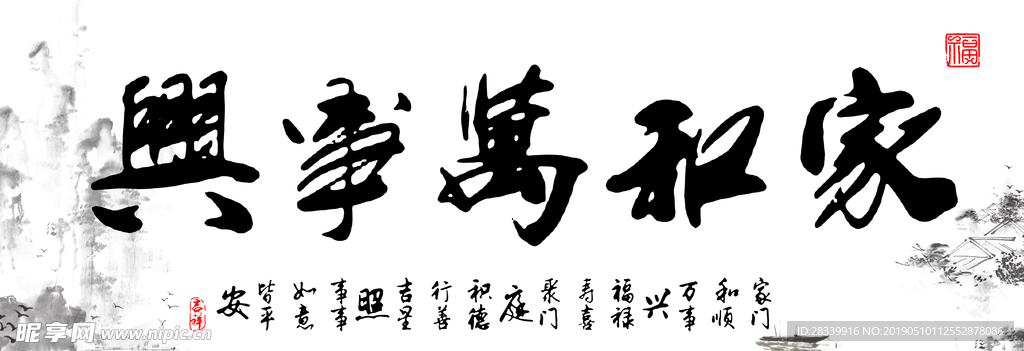 家和萬事興
福
家门和顺万事兴
福禄寿喜聚门庭
积德行善吉星照
事事如意皆平安
吉祥
昵享网 www.nipic.cn
ID:28339916 NO:20190510112552878086